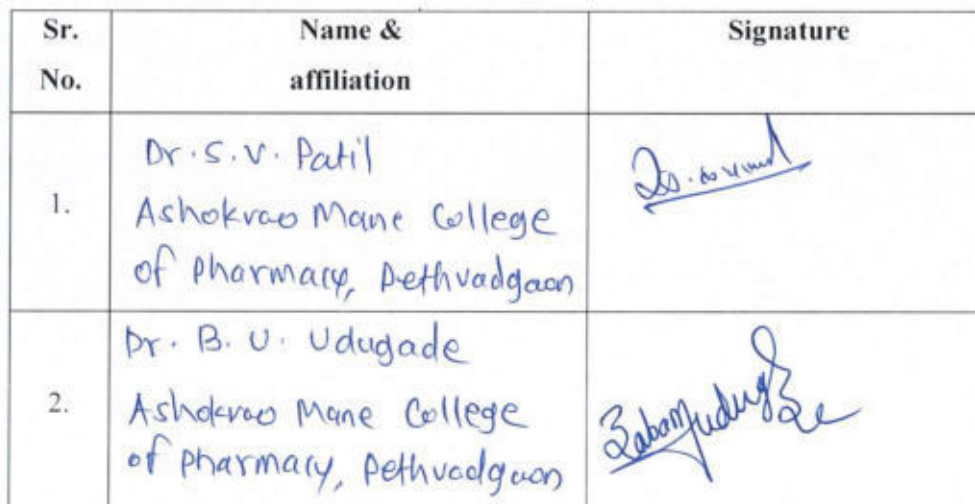 Sr. No.
Name & affiliation
Signature
1.
Dr. S. V. Patil
Ashokrao Mane College
of pharmacy, Pethvadgaon
2.
Dr. B. U. Udugade
Ashokrao Mane College
of pharmacy, Pethvadgaon